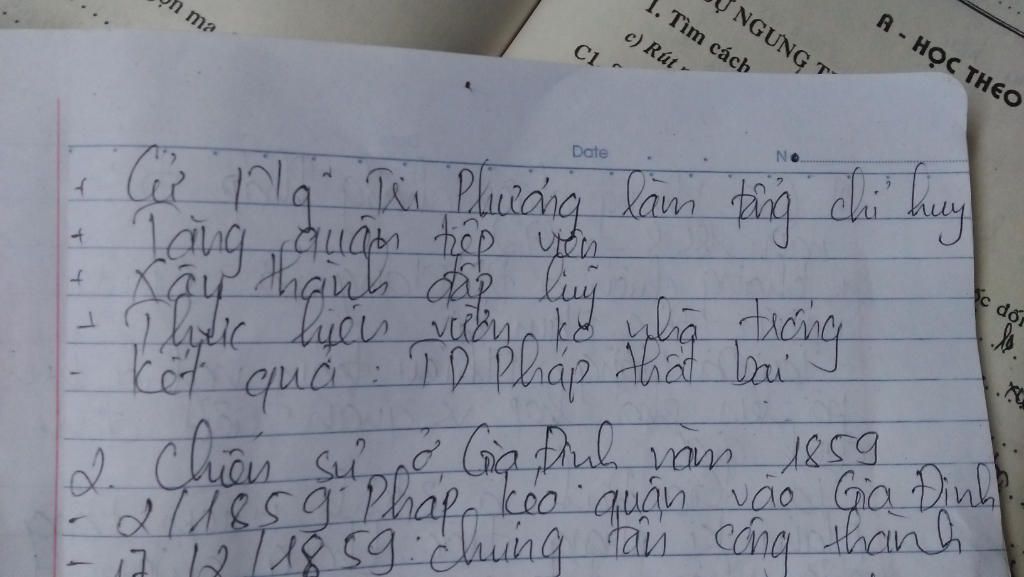 ọn ma
Ự NGƯNG T
1. Tìm cách
c) Rút
C1.
A - HỌC THEO
Date
No
+ Cử Ng~ Tri Phương làm tổng chỉ huy
+ Tăng quân tiếp viện
+ Xây thành đắp luỹ
+ Thực hiện vườn ko nhà trống
- Kết quả: TD Pháp thất bại
2. Chiến sự ở Gia Định năm 1859
- 2/1859: Pháp kéo quân vào Gia Định
- 17/2/1859: chúng tấn công thành